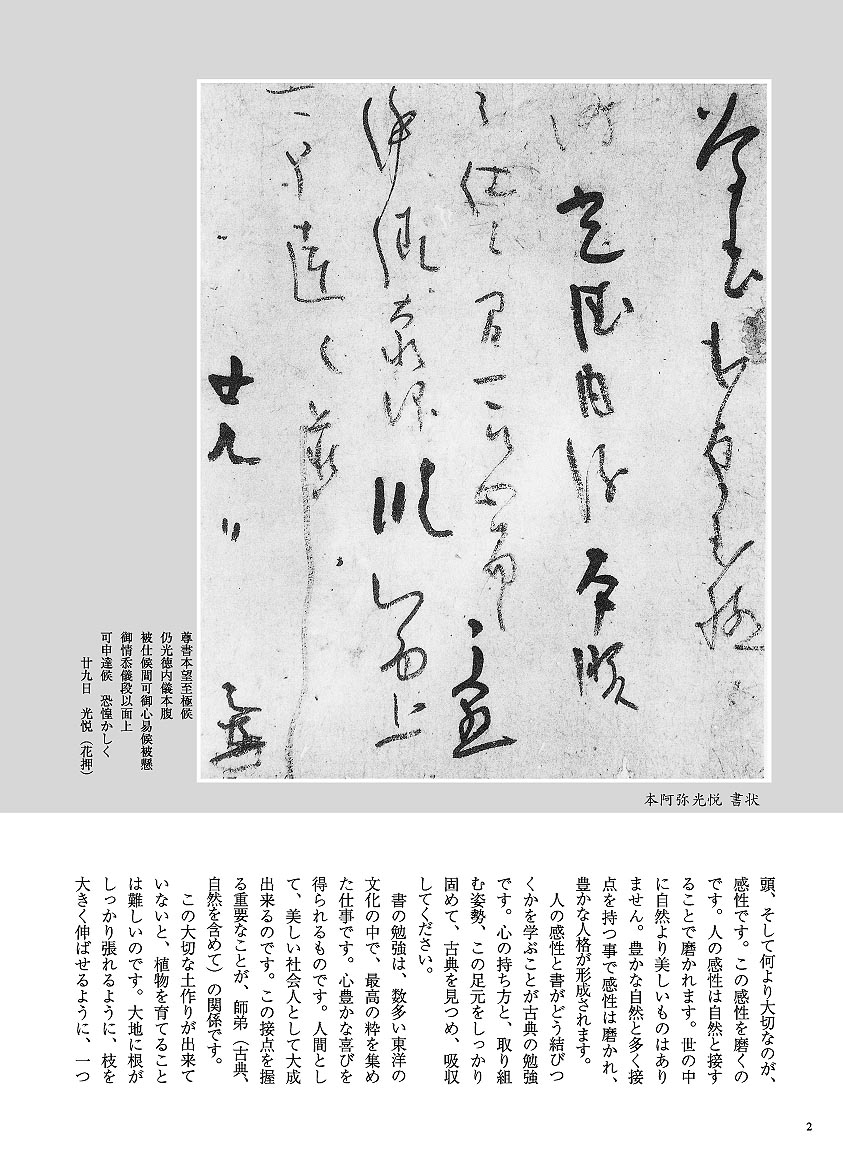 本阿弥光悦 書状
尊書本望至極候
仍光徳内儀本腹
被仕候間可御心易候被懸
御情忝儀段以面上
可申達候　恐惶かしく
廿九日　光悦（花押）
頭、そして何より大切なのが、
感性です。この感性を磨くの
です。人の感性は自然と接す
ることで磨かれます。世の中
に自然より美しいものはあり
ません。豊かな自然と多く接
点を持つ事で感性は磨かれ、
豊かな人格が形成されます。
　人の感性と書がどう結びつ
くかを学ぶことが古典の勉強
です。心の持ち方と、取り組
む姿勢、この足元をしっかり
固めて、古典を見つめ、吸収
してください。
　書の勉強は、数多い東洋の
文化の中で、最高の粋を集め
た仕事です。心豊かな喜びを
得られるものです。人間とし
て、美しい社会人として大成
出来るのです。この接点を握
る重要なことが、師弟（古典、
自然を含めて）の関係です。
　この大切な土作りが出来て
いないと、植物を育てること
は難しいのです。大地に根が
しっかり張れるように、枝を
大きく伸ばせるように、一つ
2